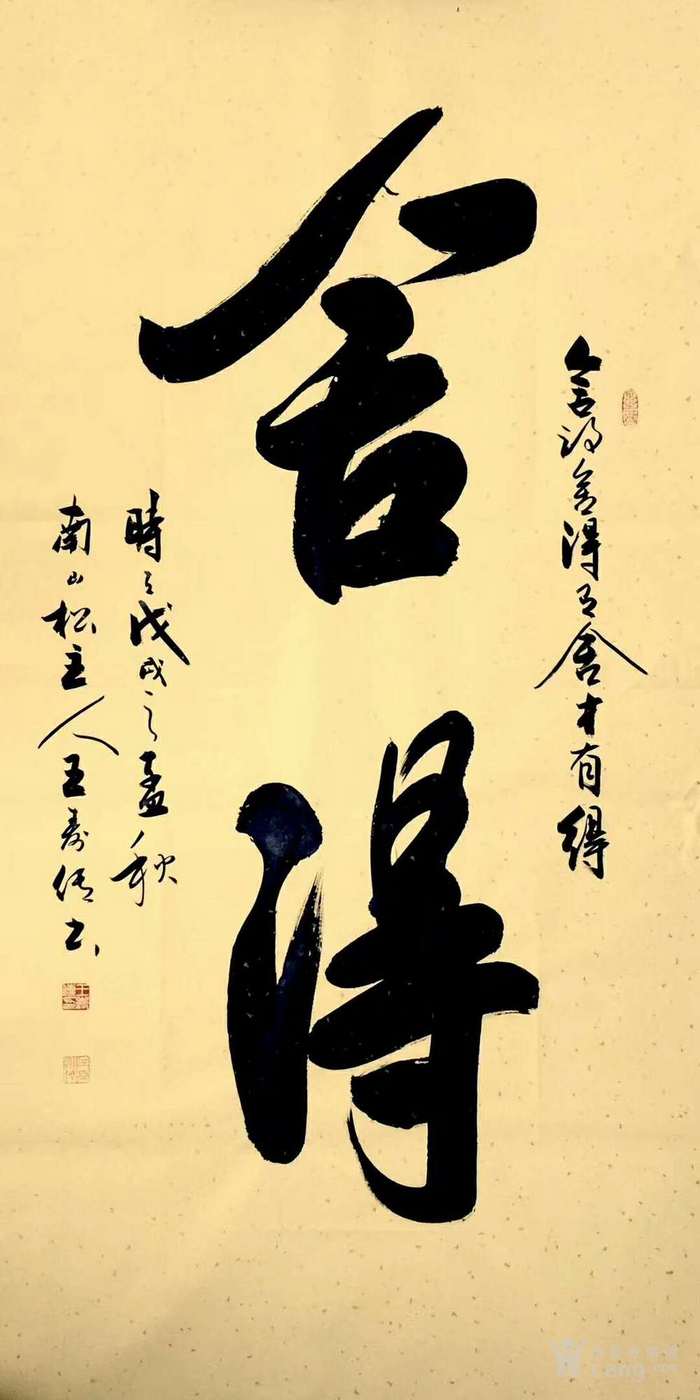 舍得舍得有舍才有得
舍得
時在戊戌之孟秋
南山松主人王壽傳书